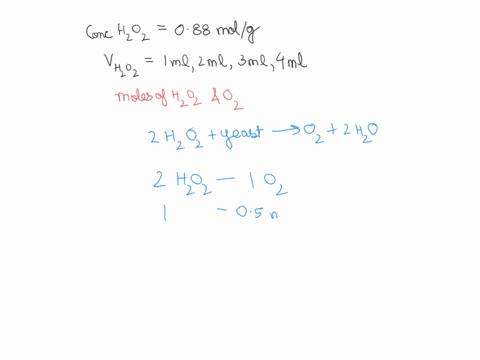 Conc H₂O₂ = 0.88 mol/g
V H₂O₂ = 1ml, 2ml, 3ml, 4ml
moles of H₂O₂ & O₂
2 H₂O₂ + yeast → O₂ + 2 H₂O
2 H₂O₂ — 1 O₂
1 – 0.5 n